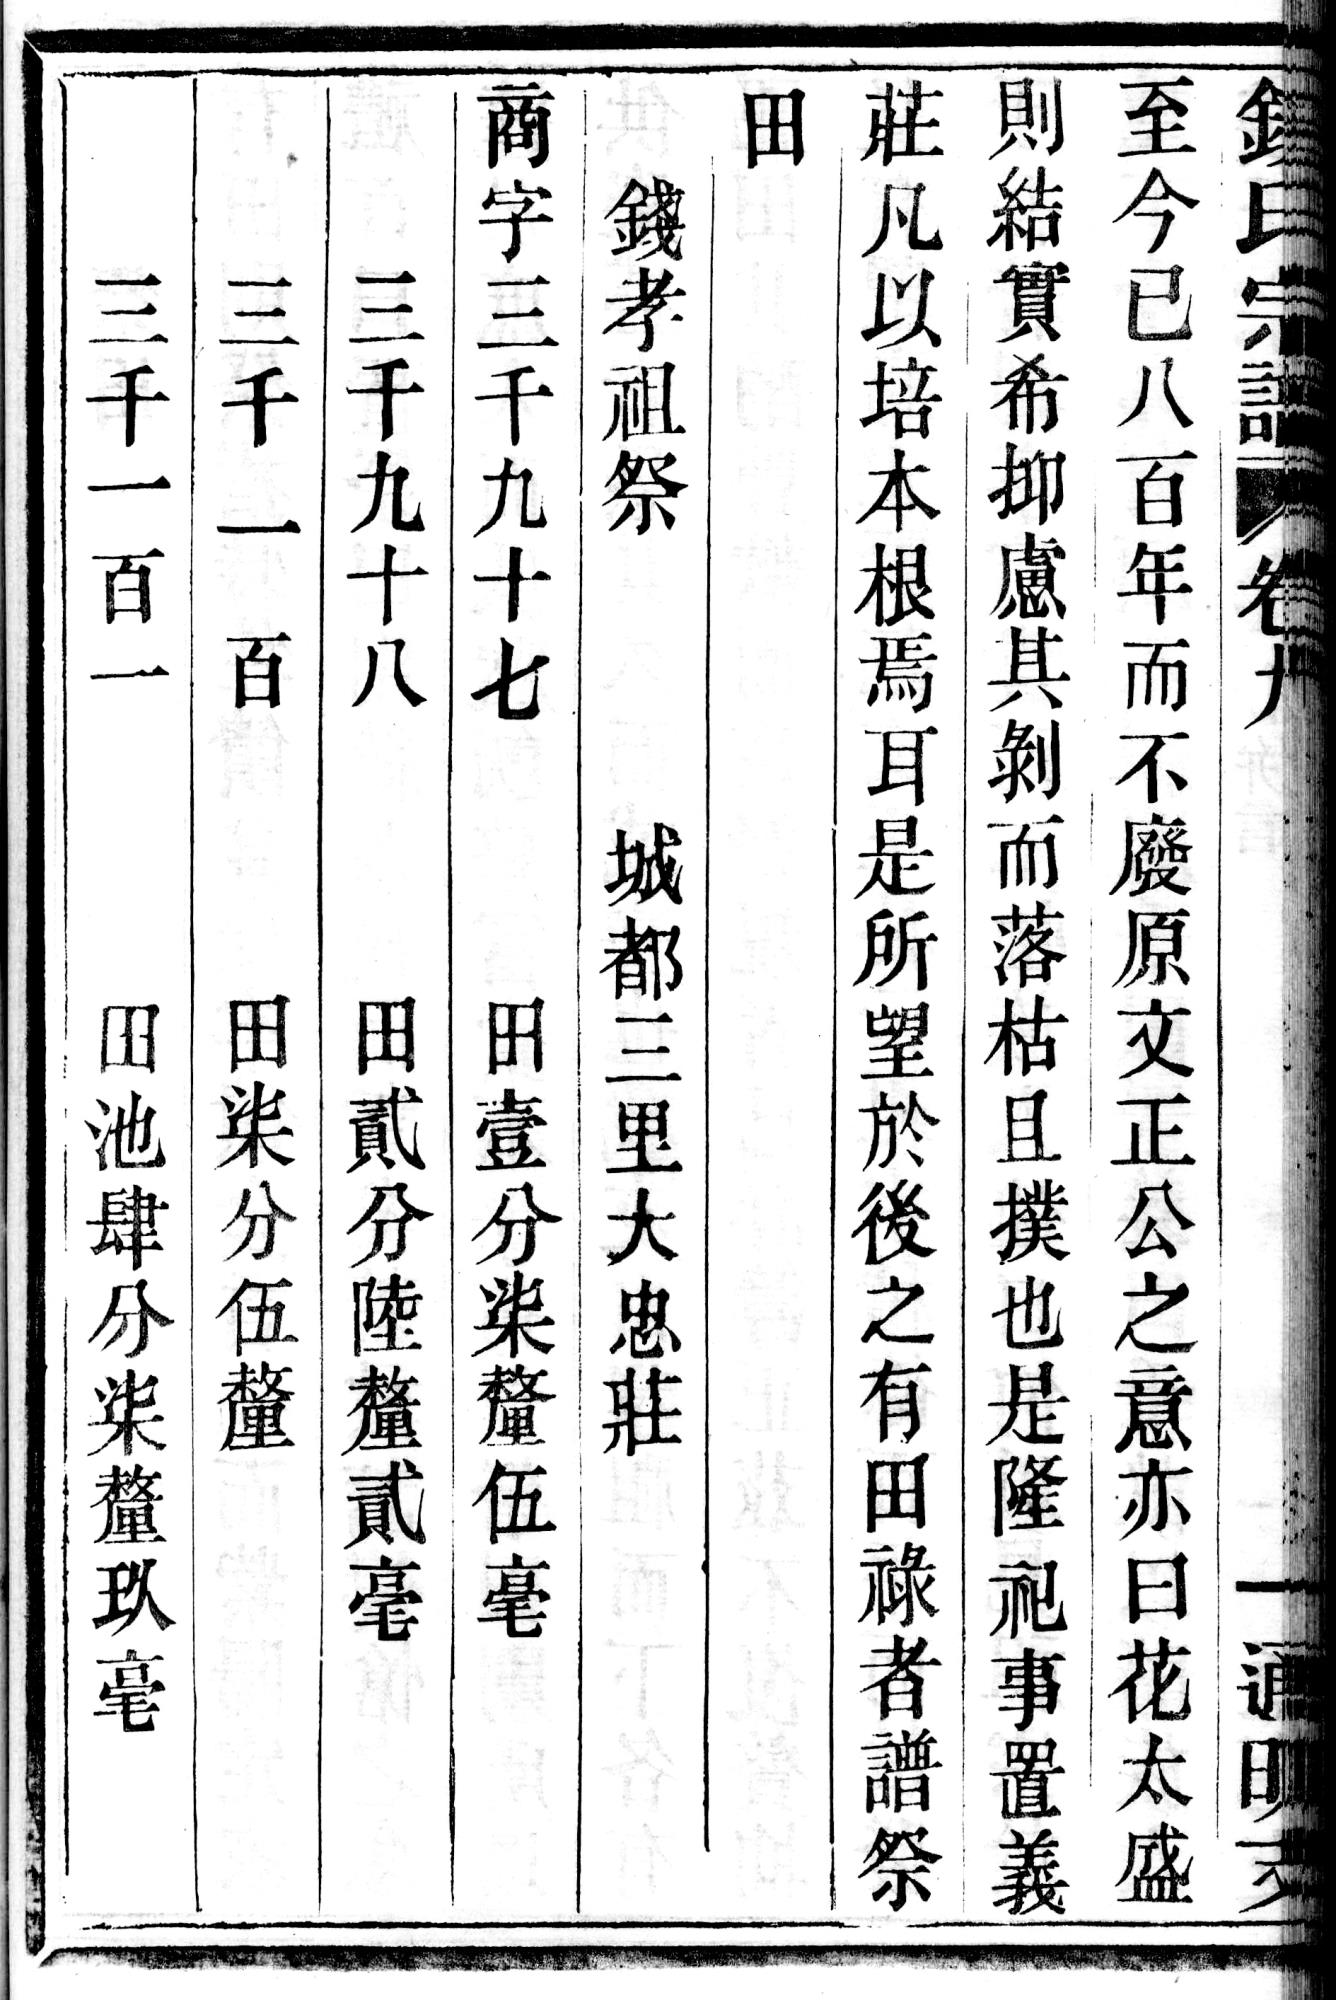 錢氏宗譜 卷九 一 通明文
至今已八百年而不廢原文正公之意亦曰花太盛
則結實希抑慮其剝而落枯且撲也是隆祀事置義
莊凡以培本根焉耳是所望於後之有田祿者譜祭
田
錢孝祖祭 城都三里大忠莊
商字三千九十七 田壹分柒釐伍毫
三千九十八 田貳分陸釐貳毫
三千一百 田柒分伍釐
三千一百一 田池肆分柒釐玖毫